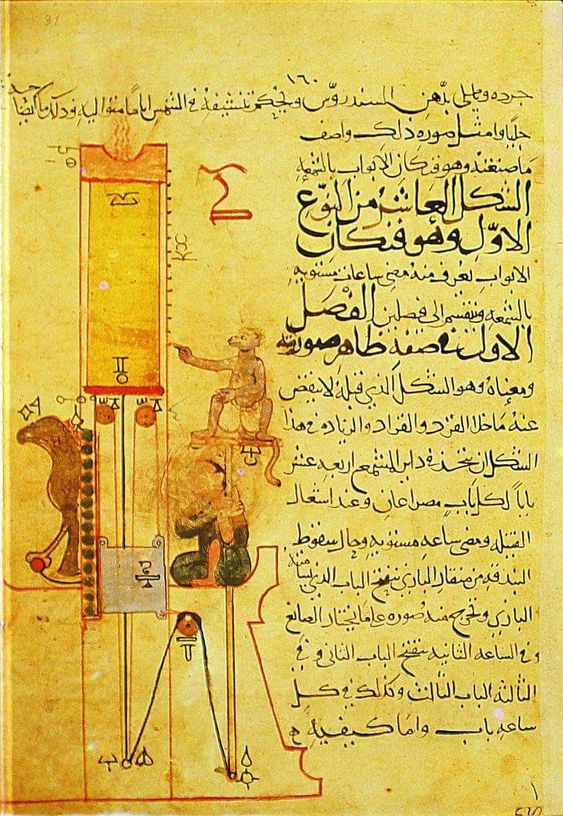 ١٦٠
جرده ويطلى بدهن السندروس ويحكم تنشيفه في الشمس اياما متواليه وذلك ما
وامثل صوره ذلك واصف
ما صنعته وهو فنكان الابواب بالشمعه
الشكل العاشر من النوع
الاول وهو فنكان
الابواب يعرف منه مضى ساعات مستويه
بالشمعه وينقسم الى فصلين الفصل
الاول في صفة ظاهر صورته
ومعناه وهو الشكل الذي قبله لا ينقص
عنه ما خلا القرد والقراد والزياده في هذا
الشكل ان يتخذ في داير الشمع اربعه عشر
بابا لكل باب مصراعان وعند اشعال
الفتيله ومضى ساعه مستويه وحال سقوط
البندقه من منقار البازي ينفتح الباب الذي
البازي ويخرج منه صوره عاما يختار الصانع
وفي الساعه الثانيه ينفتح الباب الثاني وفي
الثالثه الباب الثالث وكذلك في كل
ساعه باب واما كيفيه